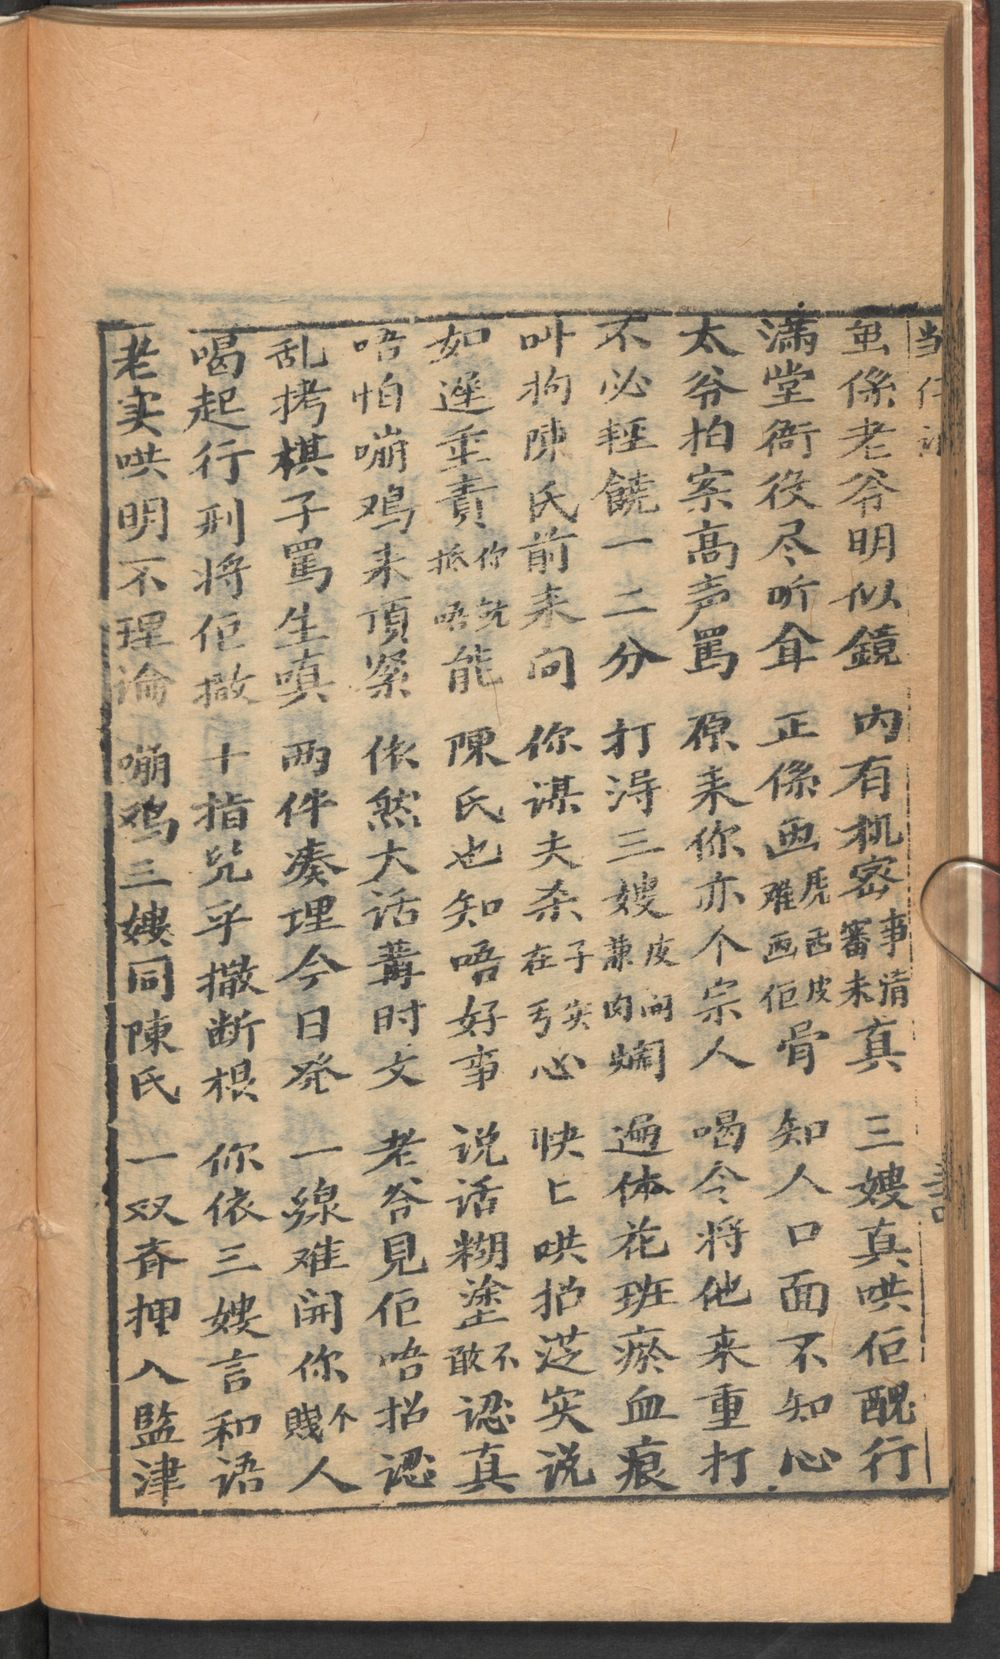 虽係老爷明似鏡　内有机密事情審未真　三嫂真哄佢醜行
滿堂衙役尽听耸　正係画虎画皮难画佢骨　知人口面不知心
太爷拍案高声罵　原来你亦个宗人　喝令将他来重打
不必轻饒一二分　打淂三嫂皮开兼肉烂　遍体花班瘀血痕
叫拘陳氏前来问　你谋夫杀子实在亏心　快匕哄招送实说
如遲重责你就抵唔能　陳氏也知唔好事　说话糊塗不敢認真
唔怕嘣鸡来頂案　依然大话講时文　老爷見佢唔招認
乱拷棋子罵生嗔　两件凑埋今日発　一線难開你个賎人
喝起行刑将佢撒　十指児乎撒断根　你依三嫂言和语
老实哄明不理論　嘣鸡三嫂同陳氏　一双斉押入監津